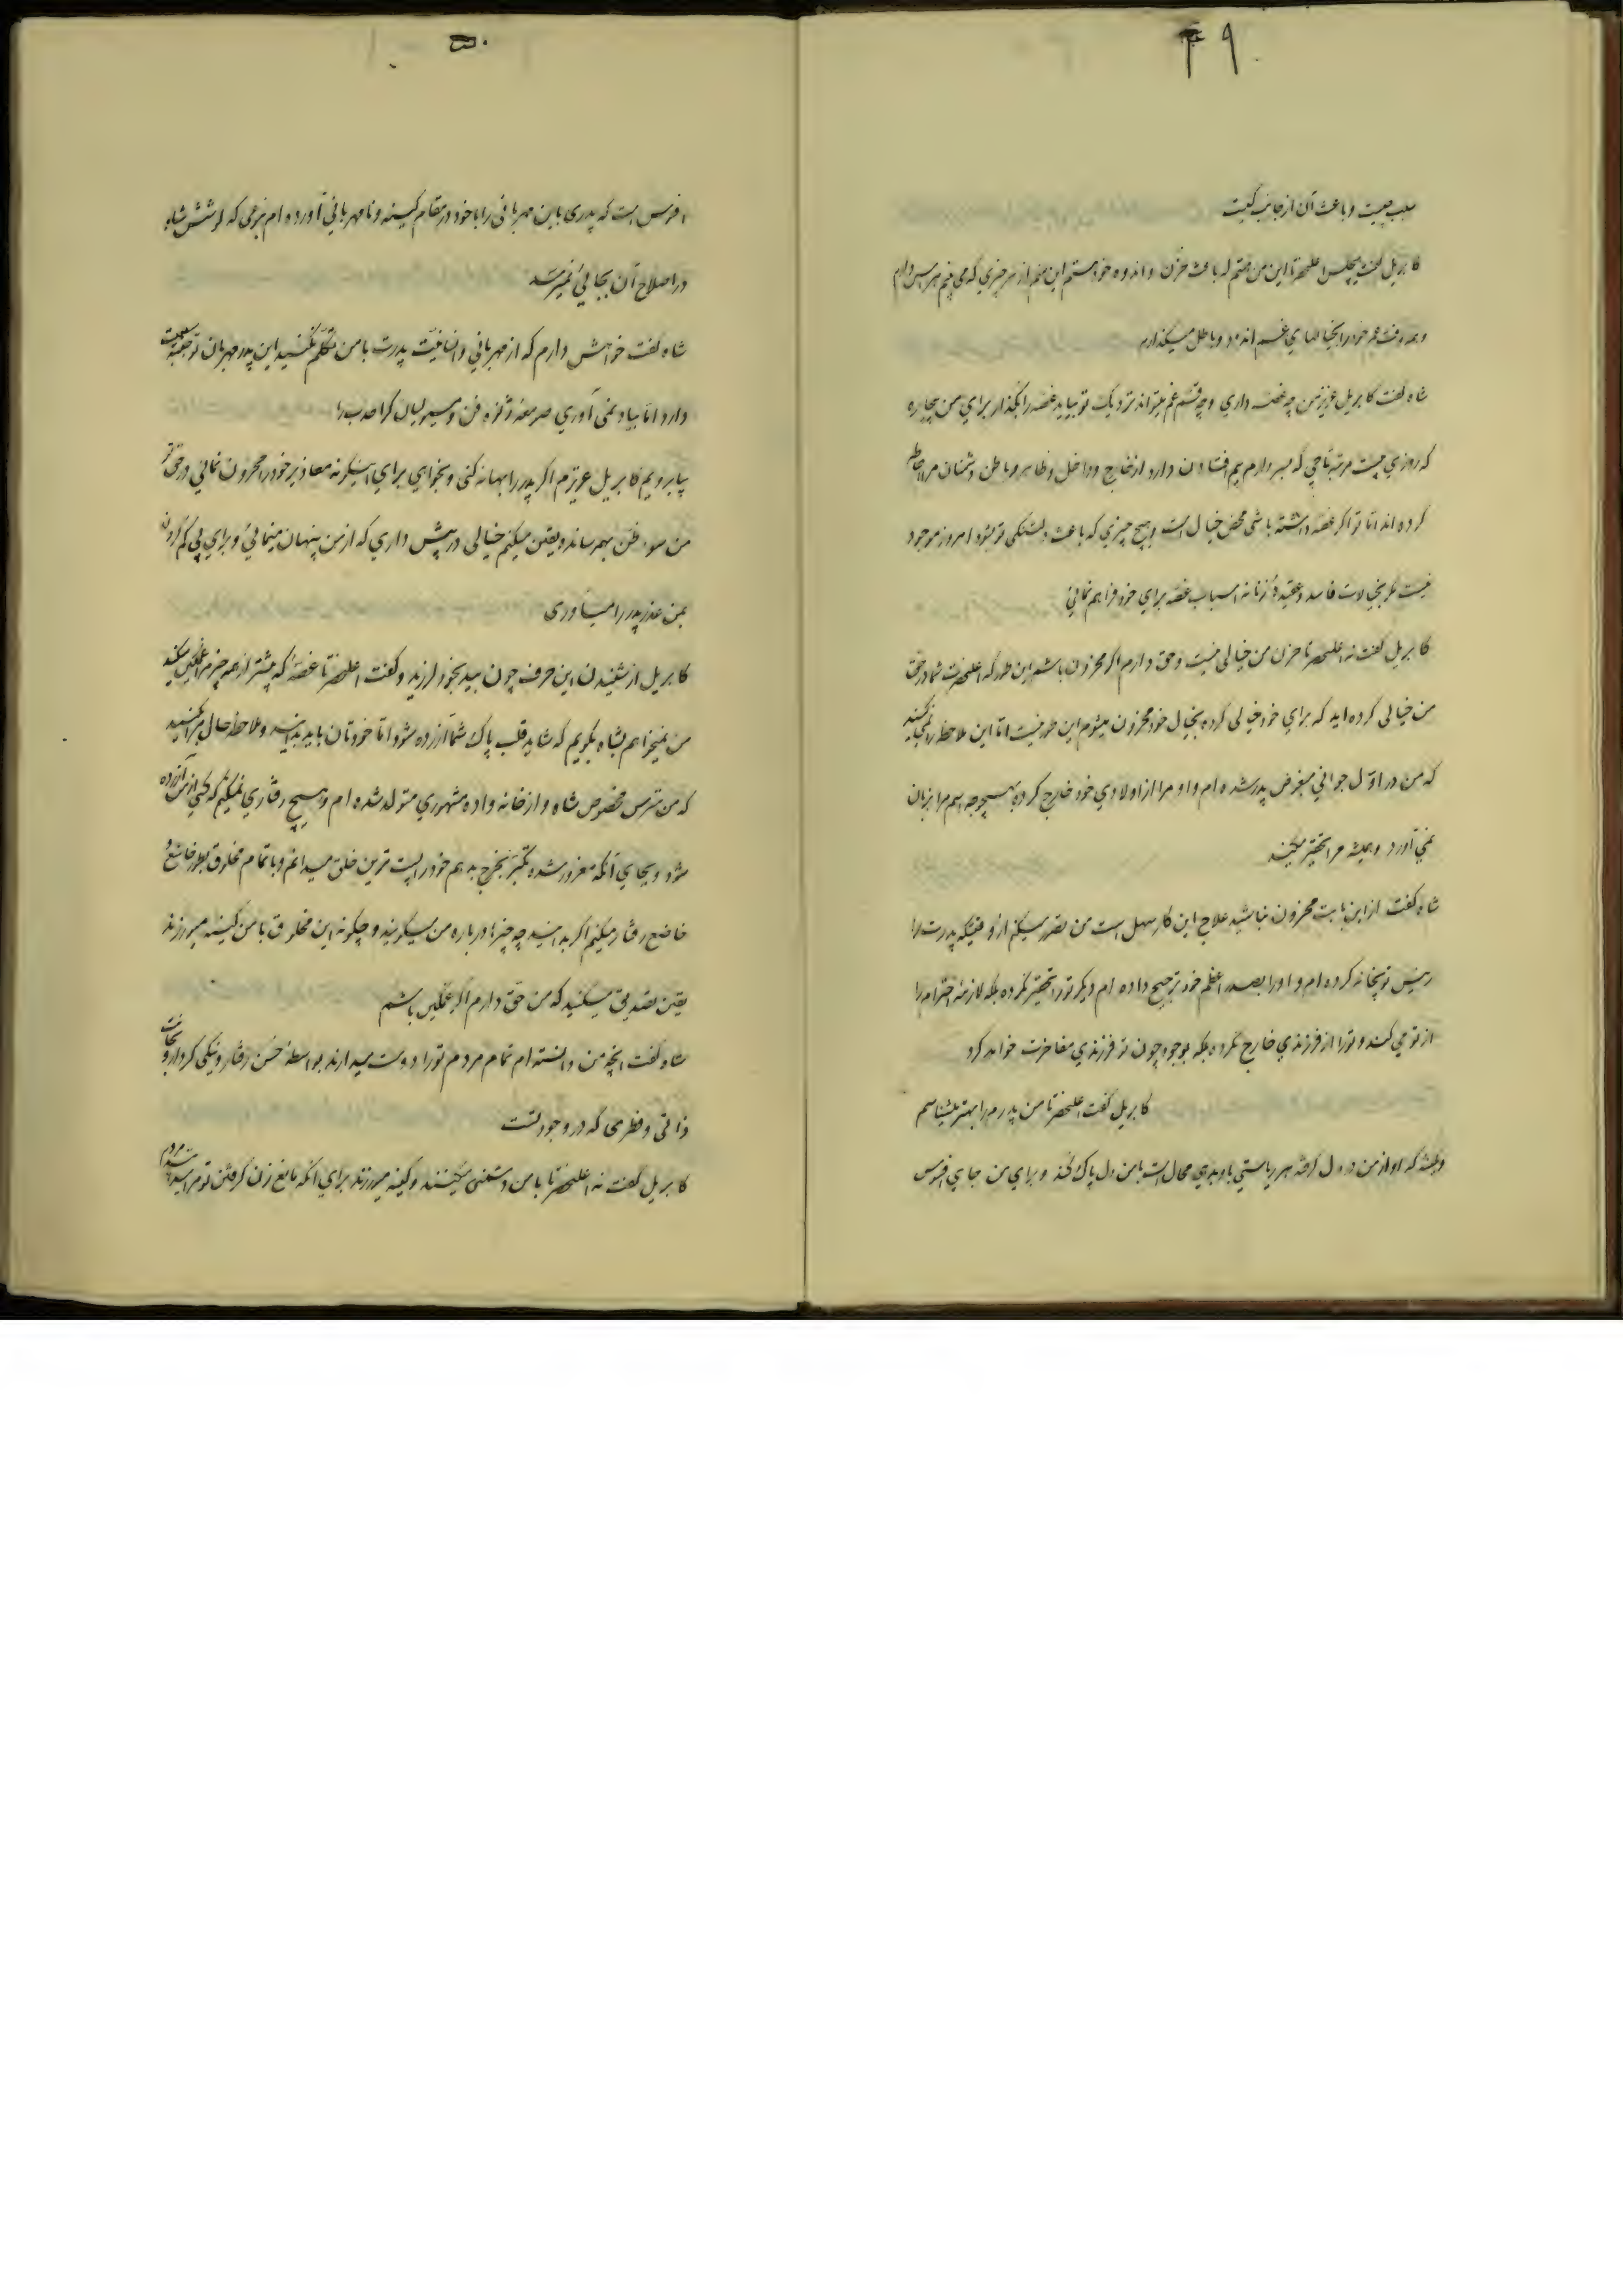 ۴۹
سبب چیست و باعث آن از جانب کیست
کابریل گفت هیچکس اعلیحضرتا این من هستم که باعث حزن و اندوه خود هستم این منم از هر چیزی که می بینم هراس دارم
و همه وقت عمر خود را بخیالهای غم اندود و باطل میگذارم
شاه گفت کابریل عزیز من چه غصه داری و چه قسم غم میتواند نزدیک تو بیاید غصه را بگذار برای من بیچاره
که روزی بیست مرتبه تاجی که بسر دارم بیم افتادن دارد از خارج و داخل و ظاهر و باطن دشمنان مرا احاطه
کرده اند اما تو اگر غصه داشته باشی محض خیال است و هیچ چیزی که باعث دلتنگی تو بشود امروز موجود
نیست مگر بخیالات فاسد و عقیده زنانه اسباب غصه برای خود فراهم نمائی
کابریل گفت نه اعلیحضرتا حزن من خیالی نیست و حق دارم اگر محزون باشم این طور که اعلیحضرت شما در حق
من خیالی کرده اید که برای خود خیالی کرده بخیال خود محزون میشوم این طور نیست اما این ملاحظه را نمی کنید
که من در اول جوانی مبغوض پدر شده ام و او مرا از اولادی خود خارج کرده بهیچوجه اسم مرا بزبان
نمی آورد و همیشه مرا تحقیر میکند
شاه گفت از این بابت محزون نباشید علاج این کار سهل است من تصور میکنم از وقتیکه پدرت را
رئیس توپخانه کرده ام و او را بصدر اعظم خود ترجیح داده ام دیگر تو را تحقیر نکرده بلکه لازمه احترام را
از تو می کند و تو را از فرزندی خارج نکرده بلکه بوجود چون تو فرزندی مفاخرت خواهد کرد
کابریل گفت اعلیحضرتا من پدرم را بهتر میشناسم
که او از من در دل گرفته هر ریاستی باو بدهی محال است با من دل پاک کند و برای من جای افسوس
۵۰
افسوس است که پدری باین مهربانی را با خود در مقام کینه و نامهربانی آورده ام بنوعی که کوشش شاه
در اصلاح آن بجائی نمیرسد
شاه گفت خواهش دارم که از مهربانی و انسانیت پدرت با من تکلم نکنید این پدر مهربان تو طبیعت
دارد اما بیاد نمی آوری صرمعه و فن و مسیو لیان کراحدب را
بیا برویم کابریل عزیزم اگر پدر را بهانه کنی و بخواهی برای اینگونه معاذیر خود را محزون نمائی در حق تو
من سوء ظن بهم رسانده و یقین میکنم خیالی در پیش داری که از من پنهان مینمائی و برای پی گم کردن
بمن عذر پدر را میآوری
کابریل از شنیدن این حرف چون بید بخود لرزید و گفت اعلیحضرتا غصه که بیشتر از همه چیز مرا غمگین میکند
من نمیخواهم بشاه بگویم که شاید قلب پاک شما آزرده شود اما خودتان باید بدانید و ملاحظه حال مرا بکنید
که من مترس مخصوص شاه و از خانه واده مشهوری متولد شده ام و هیچ رفتاری نمیکنم که کسی از من آزرده
شود و بجای آنکه مغرور شده تکبر بخرج بدهم خود را پست ترین خلق میدانم و با تمام مخلوق بطور خاشع و
خاضع رفتار میکنم اگر بدانید چه چیزها در باره من میگویند و چگونه این مخلوق با من کینه میورزند
یقین تصدیق میکنید که من حق دارم اگر غمگین باشم
شاه گفت آنچه من دانسته ام تمام مردم تو را دوست میدارند بواسطه حسن رفتار و نیکی کردار و نجابت
ذاتی و فطری که در وجود تست
کابریل گفت نه اعلیحضرتا با من دشمنی میکنند و کینه میورزند برای آنکه مانع زن گرفتن تو مرا میدانند مردم